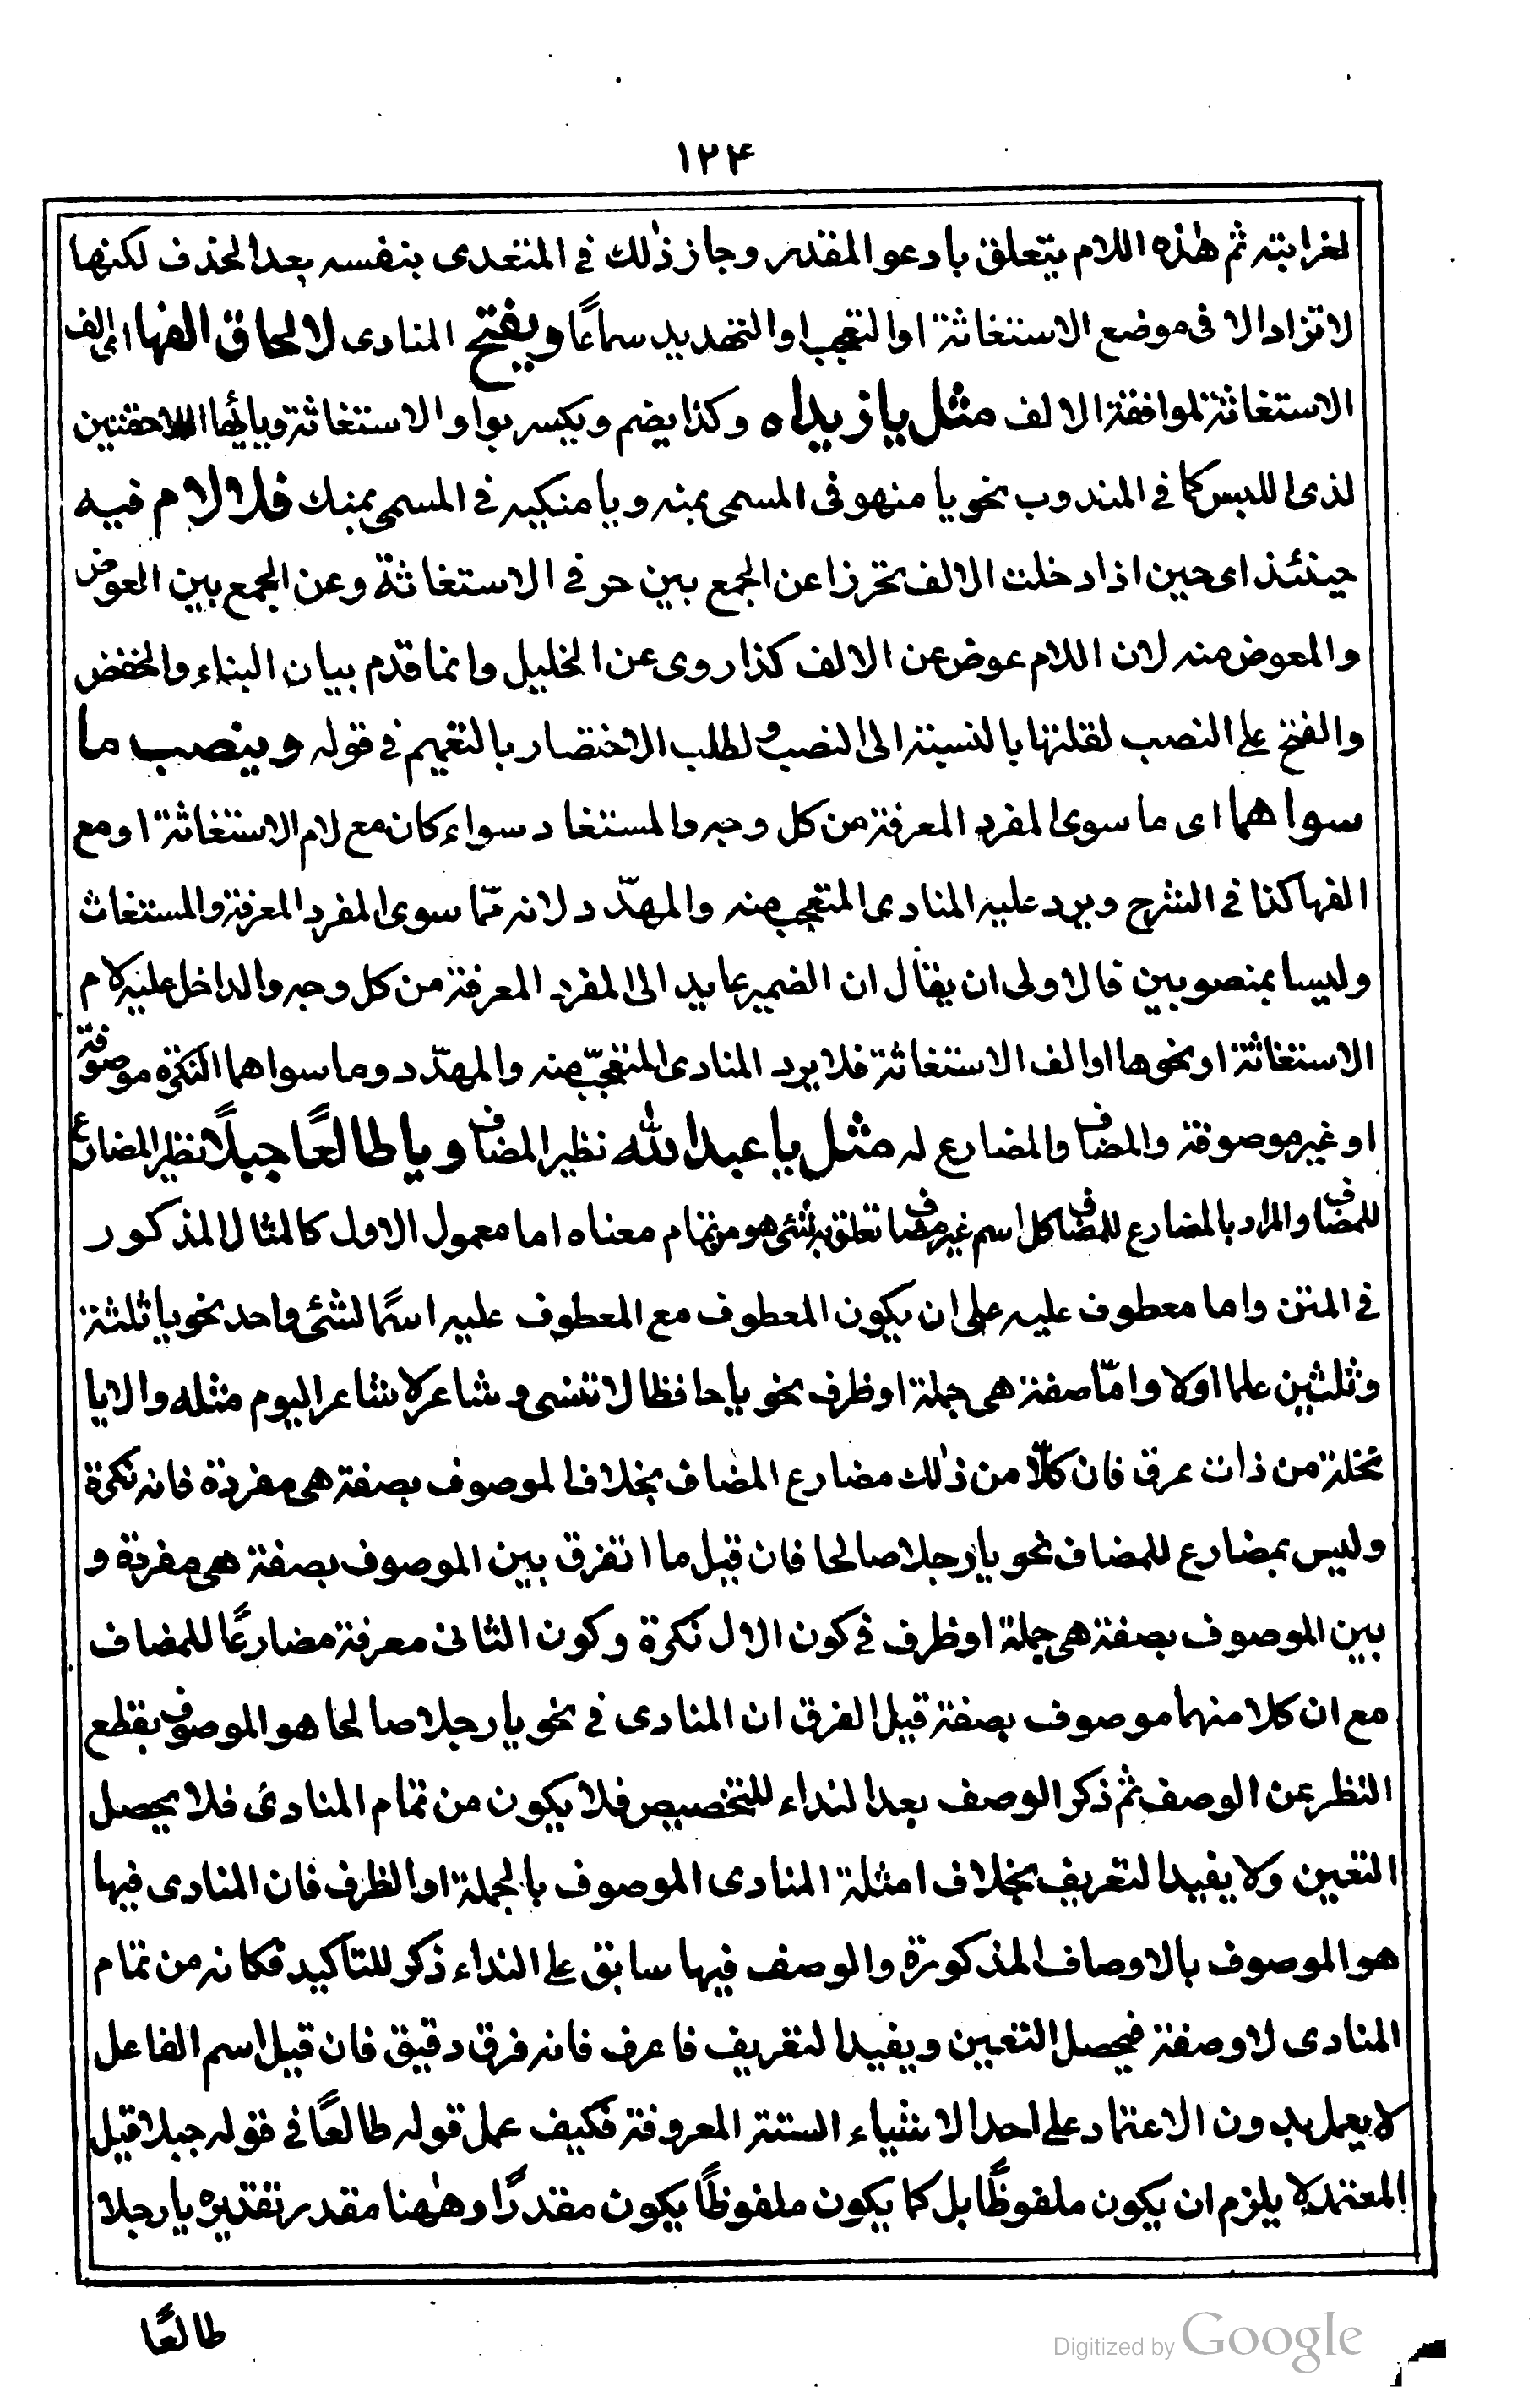 ١٢٤
لغرابته ثم هٰذه اللام يتعلق بادعو المقدر وجاز ذٰلك في المتعدى بنفسه بعد الحذف لكنها
لا تزاد الا فى موضع الاستغاثة او التعجب او التهديد سماعًا ويفتح المنادى لالحاق الفها اى الف
الاستغاثة لموافقة الالف مثل يا زيداه وكذا يضم ويكسر بواو الاستغاثة ويائها اللاحقتين
لذى اللبس كما في المندوب نحو يا منهو فى المسمى بمنه ويا منكيه في المسمى بمنك فلا لام فيه
حينئذ اى حين اذا دخلت الالف تحرزا عن الجمع بين حرفي الاستغاثة وعن الجمع بين العوض
والمعوض منه لان اللام عوض عن الالف كذا روى عن الخليل وانما قدم بيان البناء والخفض
والفتح على النصب لقلتها بالنسبة الى النصب ولطلب الاختصار بالتعميم في قوله وينصب ما
سواهما اى ما سوى المفرد المعرفة من كل وجه والمستغاد سواء كان مع لام الاستغاثة او مع
الفها كذا في الشرح ويرد عليه المنادى المتعجب منه والمهدّد لانه ممّا سوى المفرد المعرفة والمستغاث
وليسا بمنصوبين فالاولى ان يقال ان الضمير عايد الى المفرد المعرفة من كل وجه والداخل عليه لام
الاستغاثة او نحوها او الف الاستغاثة فلا يرد المنادى المتعجّب منه والمهدّد وما سواهما النكرة موصوفة
او غير موصوفة والمضاف والمضارع له مثل يا عبد الله نظير المضاف ويا طالعًا جبلًا نظير المضارع
للمضاف والمراد بالمضارع للمضاف كل اسم غير مضاف تعلق به شئى هو من تمام معناه اما معمول الاول كالمثال المذكور
في المتن واما معطوف عليه على ان يكون المعطوف مع المعطوف عليه اسمًا لشئى واحد نحو يا ثلثة
وثلثين علما اولا وامّا صفة هى جملة او ظرف نحو يا حافظا لا تنسى و شاعر لا شاعر اليوم مثله والا يا
نخلة من ذات عرق فان كلّا من ذٰلك مضارع المضاف بخلاف الموصوف بصفة هى مفردة فانه نكرة
وليس بمضارع للمضاف نحو يا رجلا صالحا فان قيل ما الفرق بين الموصوف بصفة هى مفردة و
بين الموصوف بصفة هى جملة او ظرف في كون الال نكرة وكون الثانى معرفة مضارعًا للمضاف
مع ان كلا منهما موصوف بصفة قيل الفرق ان المنادى في نحو يا رجلا صالحا هو الموصوف بقطع
النظر عن الوصف ثم ذكر الوصف بعد النداء للتخصيص فلا يكون من تمام المنادى فلا يحصل
التعين ولا يفيد التعريف بخلاف امثلة المنادى الموصوف بالجملة او الظرف فان المنادى فيها
هو الموصوف بالاوصاف المذكورة والوصف فيها سابق على النداء ذكر للتاكيد فكانه من تمام
المنادى لا وصفة فيحصل التعين ويفيد التعريف فاعرف فانه فرق دقيق فان قيل اسم الفاعل
لا يعمل بدون الاعتماد على احد الاشياء الستة المعروفة فكيف عمل قوله طالعًا في قوله جبلا قيل
المعتمد لا يلزم ان يكون ملفوظًا بل كما يكون ملفوظًا يكون مقدرًا وهٰهنا مقدر تقديره يا رجلا
طالعًا
Digitized by Google